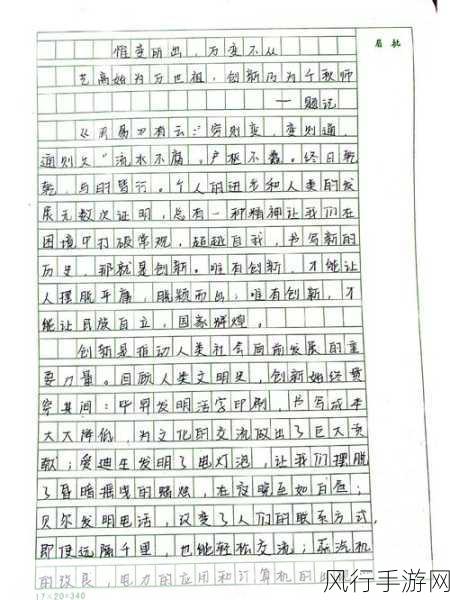 惟变所出，万变不从
艺高始为万世祖，创新乃为千教师
——题记
《周易》有云："穷则变，变则通，
通则久"流水不腐，户枢不蠹。终日乾
乾，与时皆行。个人的进步和人类的发
展无数次证明，总有一种精神让我们在
困境中打破常规，超越自我，书写新的
历史，那就是创新。唯有创新，才能让
人摆脱平庸，脱颖而出；唯有创新，才
能让民族自立，国家辉煌。
创新是推动人类社会向前发展的重
要力量。回顾人类文明史，创新始终贯
穿其间：毕昇发明活字印刷，书写成本
大大降低，为文化的交流做出了巨大贡
献；爱迪生发明了电灯泡，让我们摆脱
了昏暗摇曳的烛，在夜晚亮如白昼；
贝尔发明电话，改变了人们的联系方式，
即便远隔千里，也能轻松交流；蒸汽机
的改良，电力的应用和计算机的
眉批
17×20=340
风行手游网